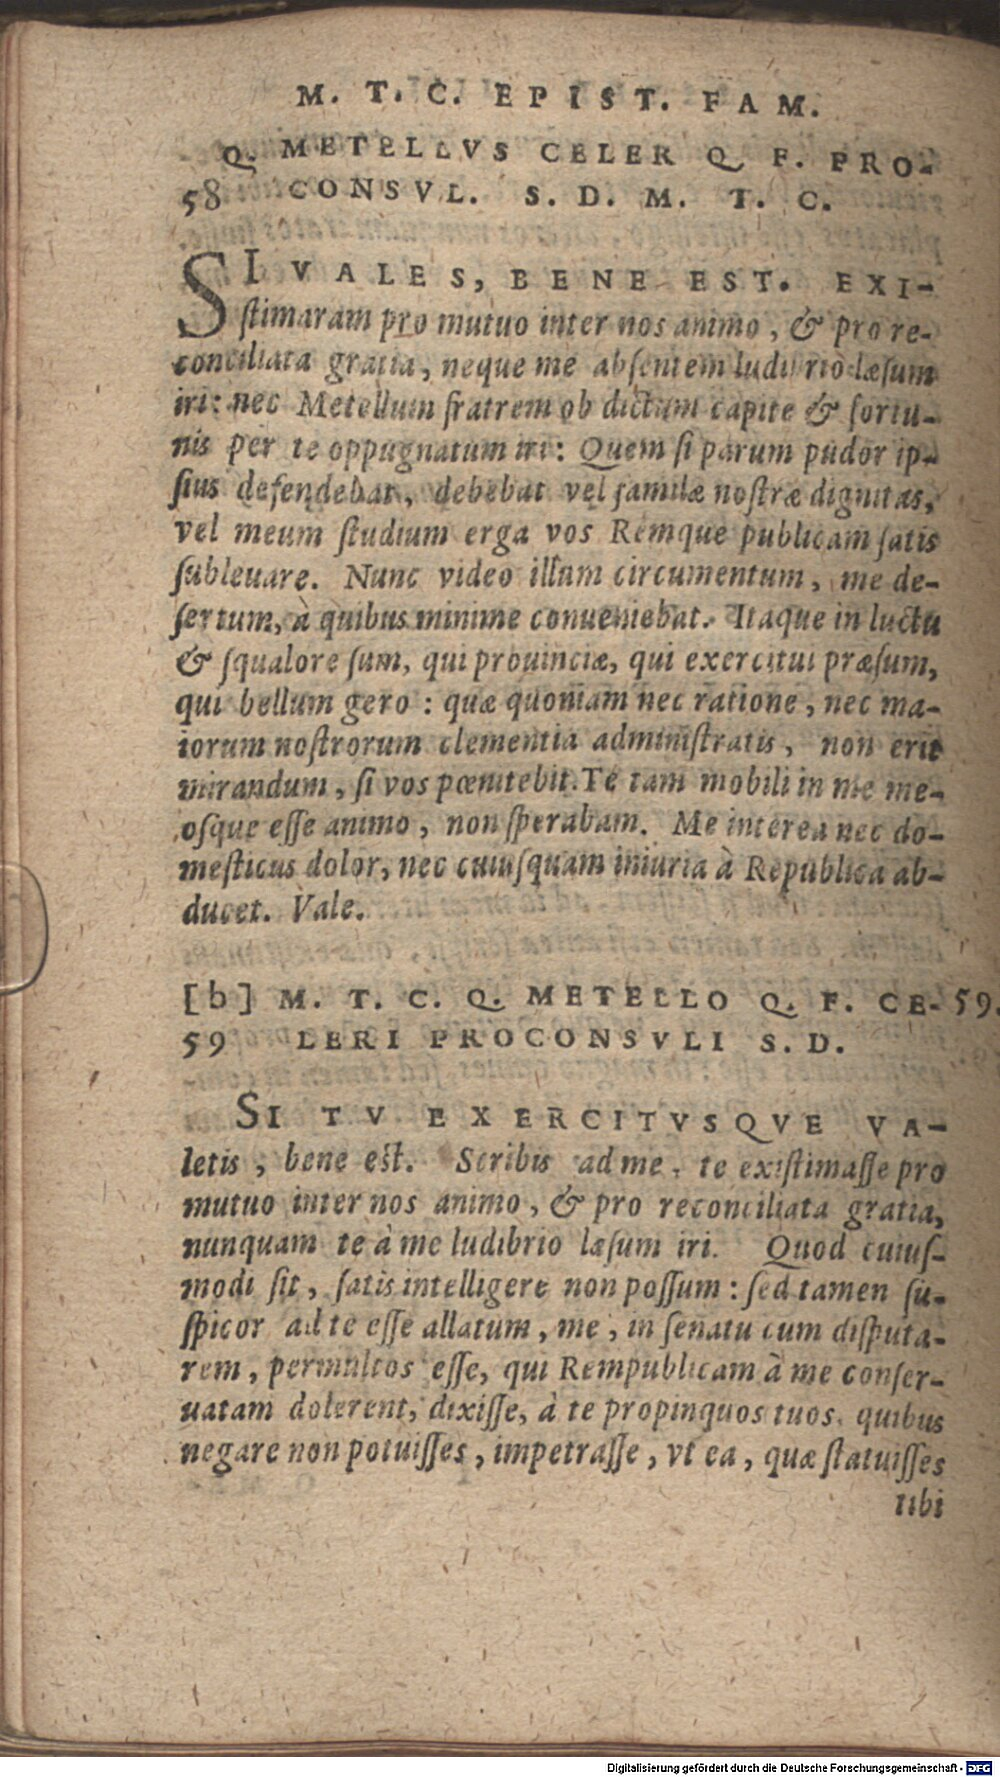 M. T. C. EPIST. FAM.
Q. METELLVS CELER Q F. PRO-
58 CONSVL. S. D. M. T. C.
SI VALES, BENE EST. EXI-
ſtimaram pro mutuo inter nos animo, & pro re-
conciliata gratia, neque me abſentem ludibrio læſum
iri: nec Metellum fratrem ob dictum capite & fortu-
nis per te oppugnatum iri: Quem ſi parum pudor ip-
ſius defendebat, debebat vel familæ noſtræ dignitas,
vel meum ſtudium erga vos Remque publicam ſatis
ſubleuare. Nunc video illum circumentum, me de-
ſertum, à quibus minime conueniebat. Itaque in luctu
& ſqualore ſum, qui prouinciæ, qui exercitui præſum,
qui bellum gero: quæ quoniam nec ratione, nec ma-
iorum noſtrorum clementia adminiſtratis, non erit
mirandum, ſi vos pœnitebit. Te tam mobili in me me-
oſque eſſe animo, non ſperabam. Me interea nec do-
meſticus dolor, nec cuiuſquam iniuria à Republica ab-
ducet. Vale.
[b] M. T. C. Q. METELLO Q. F. CE- 59.
59 LERI PROCONSVLI S. D.
SI TV EXERCITVSQVE VA-
letis, bene eſt. Scribis ad me, te exiſtimaſſe pro
mutuo inter nos animo, & pro reconciliata gratia,
nunquam te à me ludibrio læſum iri. Quod cuiuſ-
modi ſit, ſatis intelligere non poſſum: ſed tamen ſu-
ſpicor ad te eſſe allatum, me, in ſenatu cum diſputa-
rem, permultos eſſe, qui Rempublicam à me conſer-
uatam dolerent, dixiſſe, à te propinquos tuos, quibus
negare non potuiſſes, impetraſſe, vt ea, quæ ſtatuiſſes
tibi
Digitalisierung gefördert durch die Deutsche Forschungsgemeinschaft - DFG